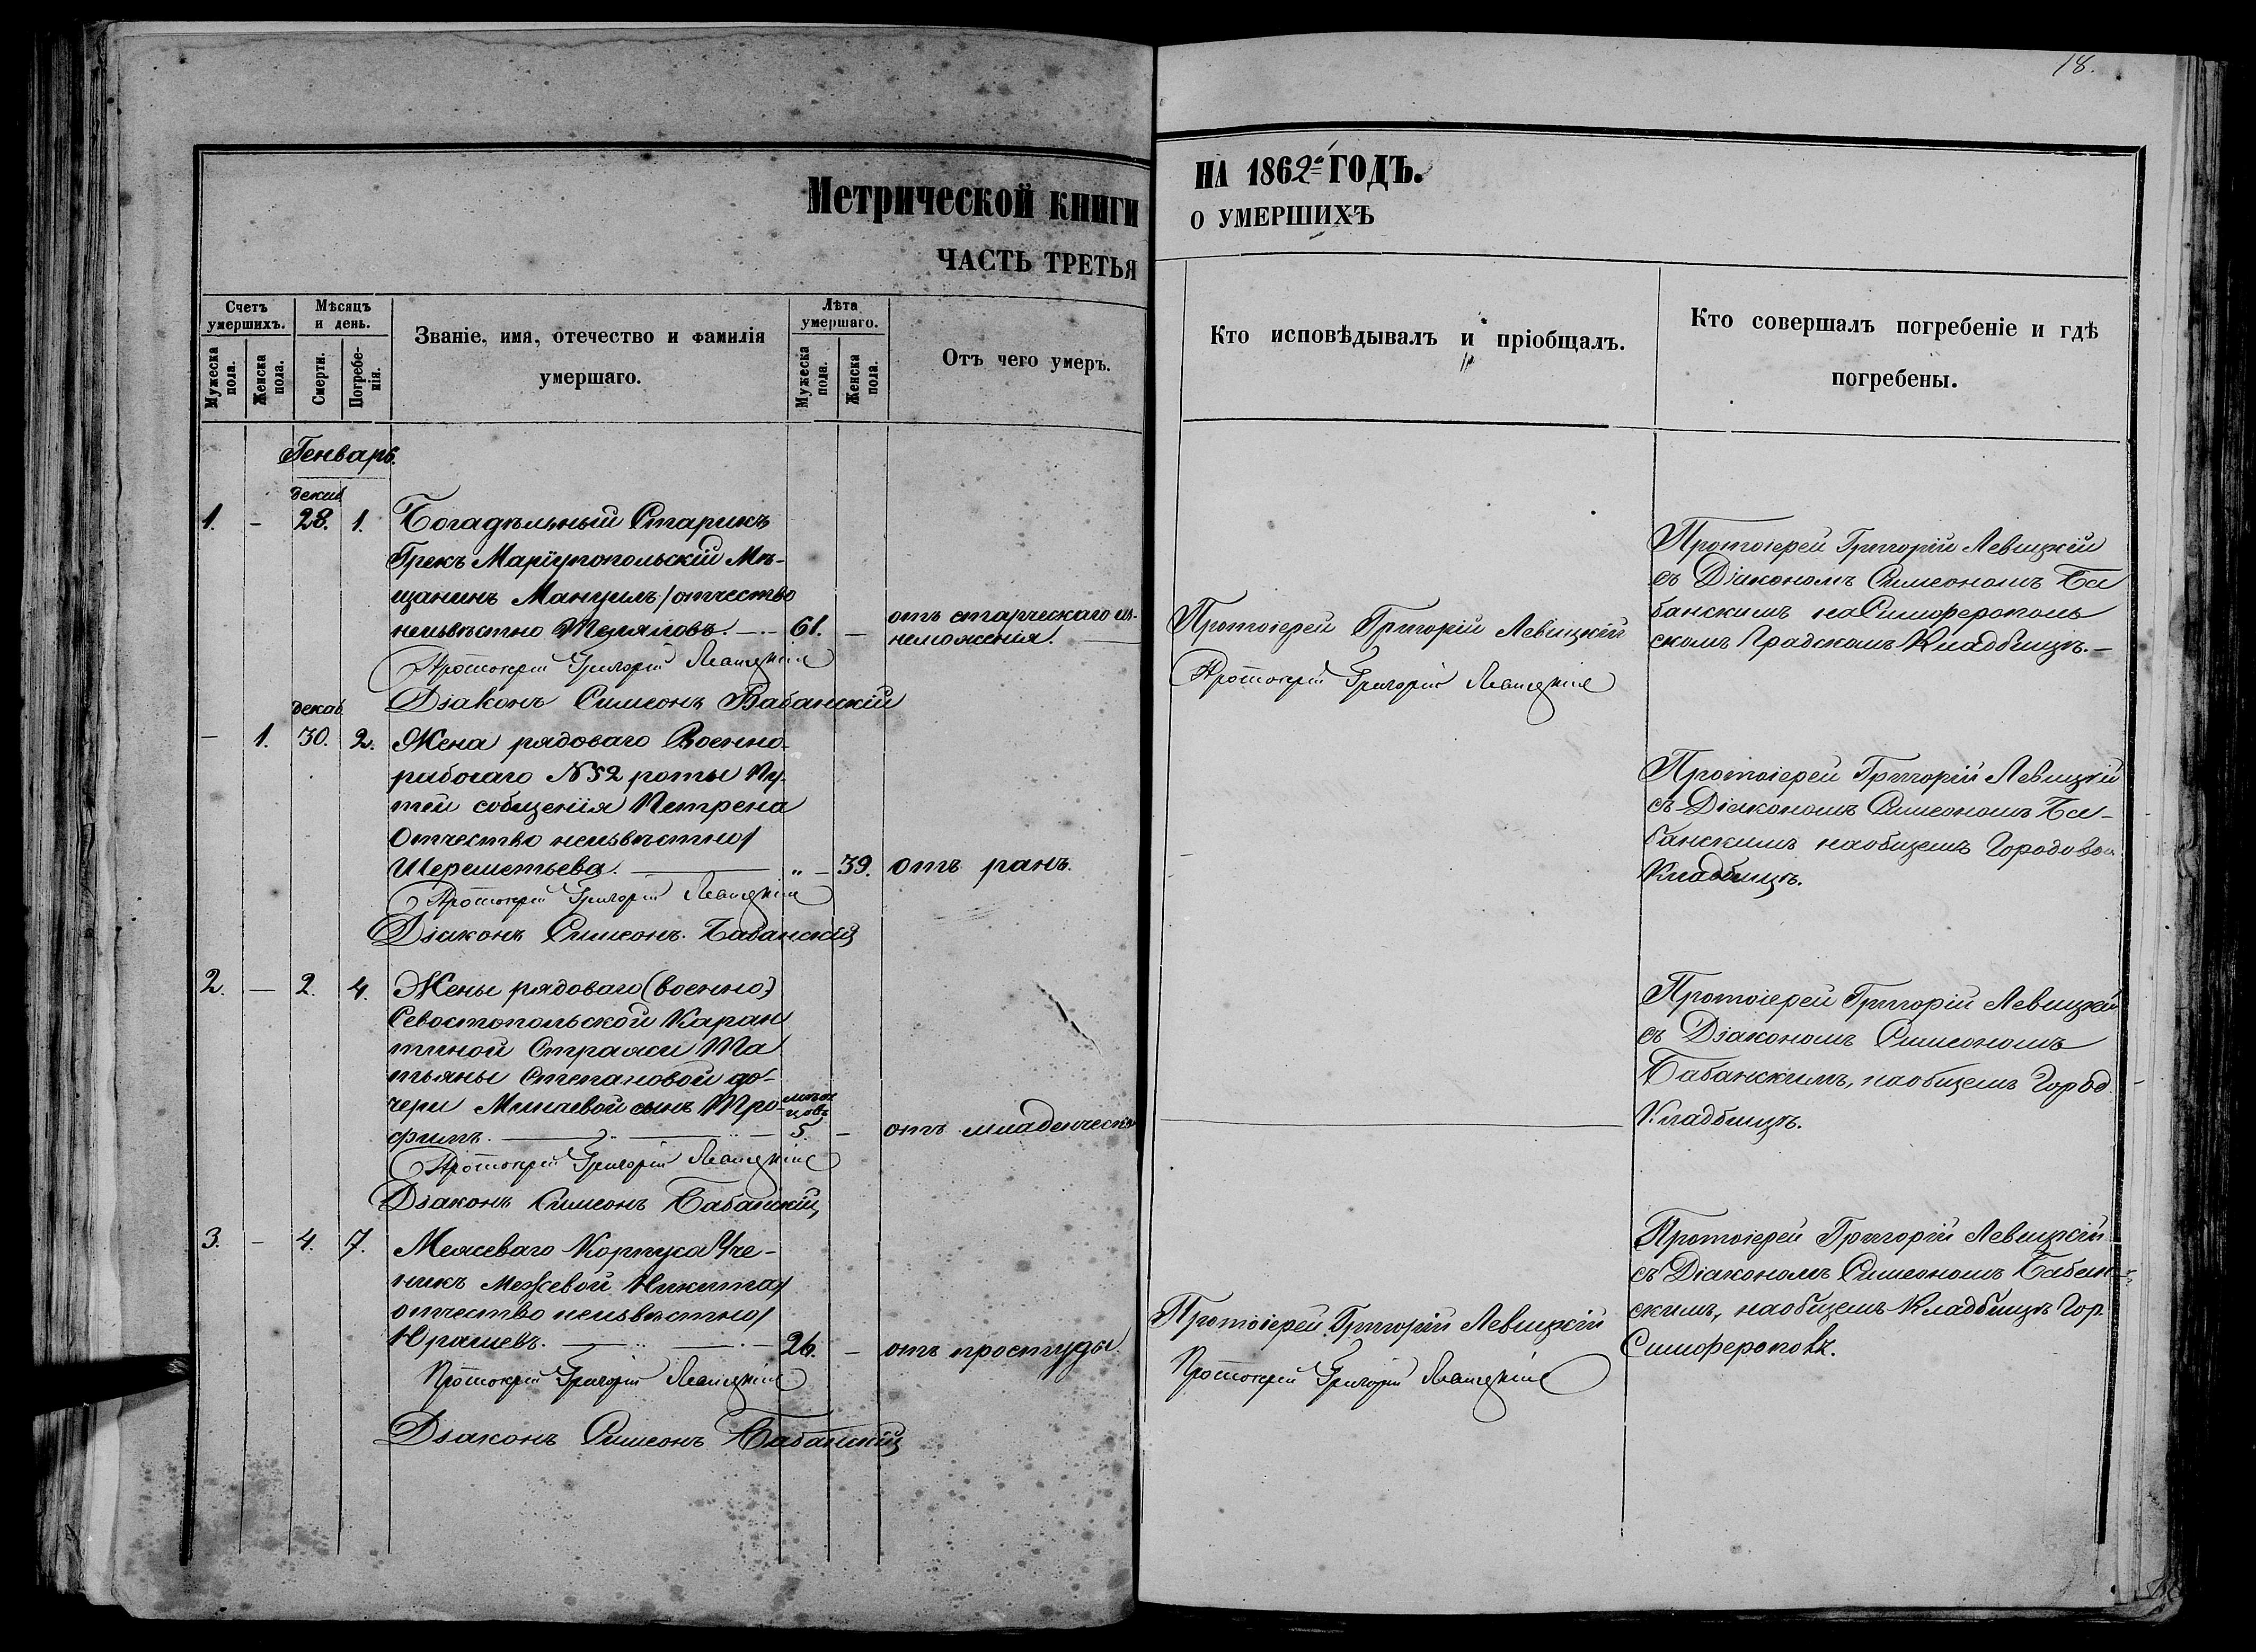 18.
Метрической книги
ЧАСТЬ ТРЕТЬЯ
НА 1862й ГОДЪ.
О УМЕРШИХЪ
Счетъ умершихъ.
Мужеска пола.
Женска пола.
Мѣсяцъ и день.
Смерти.
Погребенія.
Званіе, имя, отечество и фамилія
умершаго.
Лѣта умершаго.
Мужеска пола.
Женска пола.
Отъ чего умеръ.
Кто исповѣдывалъ и пріобщалъ.
Кто совершалъ погребеніе и гдѣ
погребены.
Генварь.
декаб
1. - 28. 1. Богадѣльный Старикъ
Грекъ Маріупопольскій Мѣ-
щанинъ Мануилъ /отчество
неизвѣстно 61. -
отъ старческаго из-
неможенія.
Протоіерей Григорій Левицкій
Діаконъ Симеонъ Бабанскій
Протоіерей Григорій Левицкій
Протоіерей Григорій Левицкій
Протоіерей Григорій Левицкій
съ Діакономъ Симеономъ Ба
банскимъ на Симферополь
скомъ Градскомъ Кладбищѣ.
декаб
- 1. 30. 2. Жена рядоваго Военно-
рабочаго №52 роты Пу-
тей собщенія Петрена
Отчество неизвѣстно/
Шереметьева. " - 39. отъ ранъ.
Протоіерей Григорій Левицкій
Діаконъ Симеонъ Бабанскій
Протоіерей Григорій Левицкій
съ Діакономъ Симеономъ Ба-
банскимъ на общемъ Городовом
Кладбищѣ.
2. - 2. 4. Жены рядоваго (военно)
Севостопольской Каран
тиной Стражи Та
тьяны Степановой до-
чери Минаевой сынъ Тро-
фимъ. 5. - отъ младенческой
Протоіерей Григорій Левицкій
Діаконъ Симеонъ Бабанскій
Протоіерей Григорій Левицкій
съ Діакономъ Симеономъ
Бабанскимъ, на общемъ Город.
Кладбищѣ.
3. - 4. 7. Межеваго Корпуса Уче-
никъ межевой Никита/
отчество неизвѣстно/
Юрашевъ. 26. - отъ простуды.
Протоіерей Григорій Левицкій
Діаконъ Симеонъ Бабанскій
Протоіерей Григорій Левицкій
Протоіерей Григорій Левицкій
Протоіерей Григорій Левицкій
съ Діакономъ Симеономъ Бабан-
скимъ, на общемъ Кладбищѣ Гор.